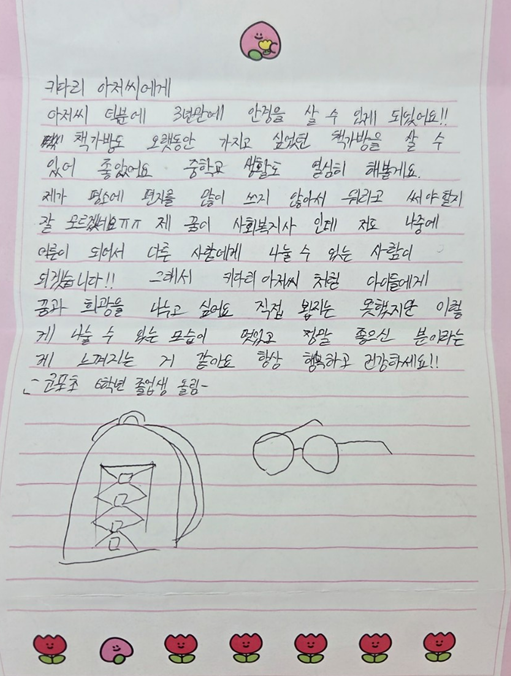 키다리 아저씨에게
아저씨 덕분에 3년만에 안경을 살 수 있게 되었어요!!
책가방도 오랫동안 가지고 싶었던 책가방을 살 수
있어 좋았어요 중학교 생활도 열심히 해볼게요.
제가 평소에 편지를 많이 쓰지 않아서 뭐라고 써야 할지
잘 모르겠네요ㅠㅠ 제 꿈이 사회복지사 인데 저도 나중에
어른이 되어서 다른 사람에게 나눌 수 있는 사람이
되겠습니다!! 그래서 키다리 아저씨 처럼 아이들에게
꿈과 희망을 나누고 싶어요 직접 뵙지는 못했지만 이렇
게 나눌 수 있는 모습이 멋있고 정말 좋으신 분이라는
게 느껴지는 거 같아요 항상 행복하고 건강하세요!!
- 고포초 6학년 졸업생 올림-